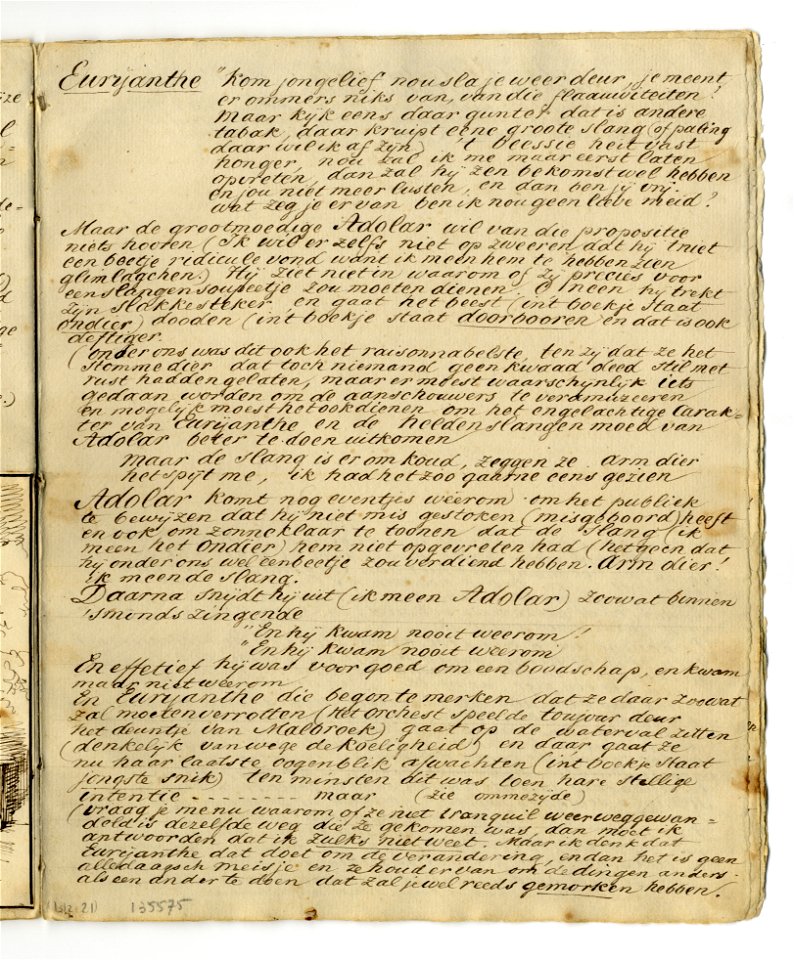 Eurijanthe "Kom jongelief nou sla je weer deur, je meent
er ommers niks van, van die flaauwiteiten!
Maar kijk eens daar gunter dat is andere
tabak, daar kruipt eene groote slang (of paling
daar wil ik af zijn) 't beessie heit vast
honger, nou zal ik me maar eerst laten
opvreten, dan zal hij zen bekomst wel hebben
en jou niet meer lusten, en dan ben jij vrij.
wat zeg je er van ben ik nou geen lieve meid?
Maar de grootmoedige Adolar wil van die propositie
niets hooren (Ik wil er zelfs niet op zweeren dat hij 't niet
een beetje ridicule vond want ik meen hem te hebben zien
glimlagchen.) Hij ziet niet in waarom of zij precies voor
een slangensoupeetje zou moeten dienen. O neen hij trekt
zijn slakkesteker, en gaat het beest (in't boekje staat
ondier) dooden (in't boekje staat doorbooren en dat is ook
deftiger.
(onder ons was dit ook het raisonnabelste, ten zij dat ze het
stomme dier dat toch niemand geen kwaad deed stil met
rust hadden gelaten, maar er moest waarschynlyk iets
gedaan worden om de aanschouwers te veramuzeeren
en mogelijk moest het ook dienen om het engelachtige Carak-
ter van Eurijanthe en de heldenslangenmoed van
Adolar beter te doen uitkomen
Maar de slang is er om koud, zeggen ze. Arm dier
het spijt me, ik had het zoo gaarne eens gezien
Adolar komt nog eventjes weerom om het publiek
te bewijzen dat hij niet mis gestoken (misgeboord) heeft
en ook om zonneklaar te toonen dat de slang (ik
meen het Ondier) hem niet opgevreten had (het geen dat
hij onder ons wel een beetje zou verdiend hebben. Arm dier!
ik meen de slang.
Daarna snijdt hij uit (ik meen Adolar) zoowat binnen
'smonds zingende
"En hij kwam nooit weerom!
"En hij kwam nooit weerom
En effetief hij was voor goed om een boodschap, en kwam
maar niet weerom
En Eurijanthe die begon te merken dat ze daar zoowat
zal moeten verrotten (Het orchest speelde toujour deur
het deuntje van Malbroek) gaat op de waterval zitten
(denkelijk van wege de koeligheid) en daar gaat ze
nu haar laatste oogenblik afwachten (in't boekje staat
jongste snik) ten minsten dit was toen hare stellige
intentie - - - - - - - - maar (zie ommezijde)
(vraag je me nu waarom of ze niet tranquil weer weggewan-
deld is dezelfde weg die ze gekomen was, dan moet ik
antwoorden dat ik zulks niet weet. Maar ik denk dat
Eurijanthe dat doet om de verandering, en dan het is geen
alledaagsch meisje en ze houd er van om de dingen anders
als een ander te doen dat zal je wel reeds gemorken hebben.
(blz. 21) 135575